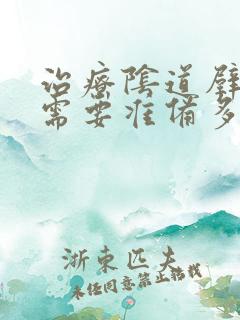 治療陰道壁
需要准備多
浙東匹夫
未经同意禁止转载